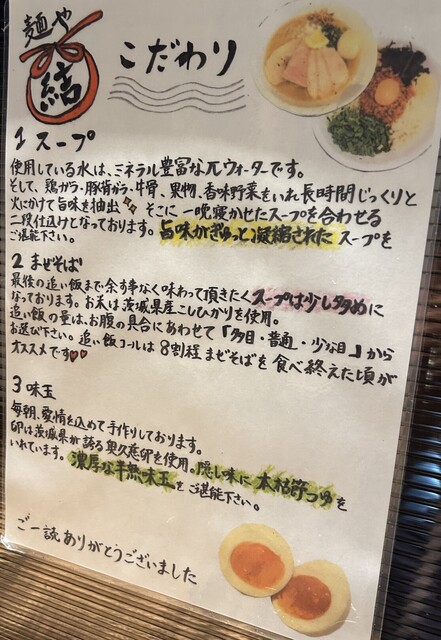 麺や
結
こだわり
1 スープ
使用している水は、ミネラル豊富なπウォーターです。
そして、鶏ガラ・豚背ガラ・牛骨、果物、香味野菜をいれ長時間じっくりと
火にかけて旨味を抽出✨ そこに一晩寝かせたスープを合わせる
二段仕込みとなっております。旨味がぎゅっと凝縮されたスープを
ご堪能下さい。
2 まぜそば
最後の追い飯まで余す事なく味わって頂きたくスープは少し多めに
なっております。お米は茨城県産こしひかりを使用。
追い飯の量は、お腹の具合にあわせて「多目・普通・少な目」から
お選び下さい。追い飯コールは8割程まぜそばを食べ終えた頃が
オススメです♥♥
3 味玉
毎朝、愛情を込めて手作りしております。
卵は茨城県が誇る奥久慈卵を使用。隠し味に本枯節つゆを
いれています。濃厚な半熟味玉をご堪能下さい。
ご一読ありがとうございました